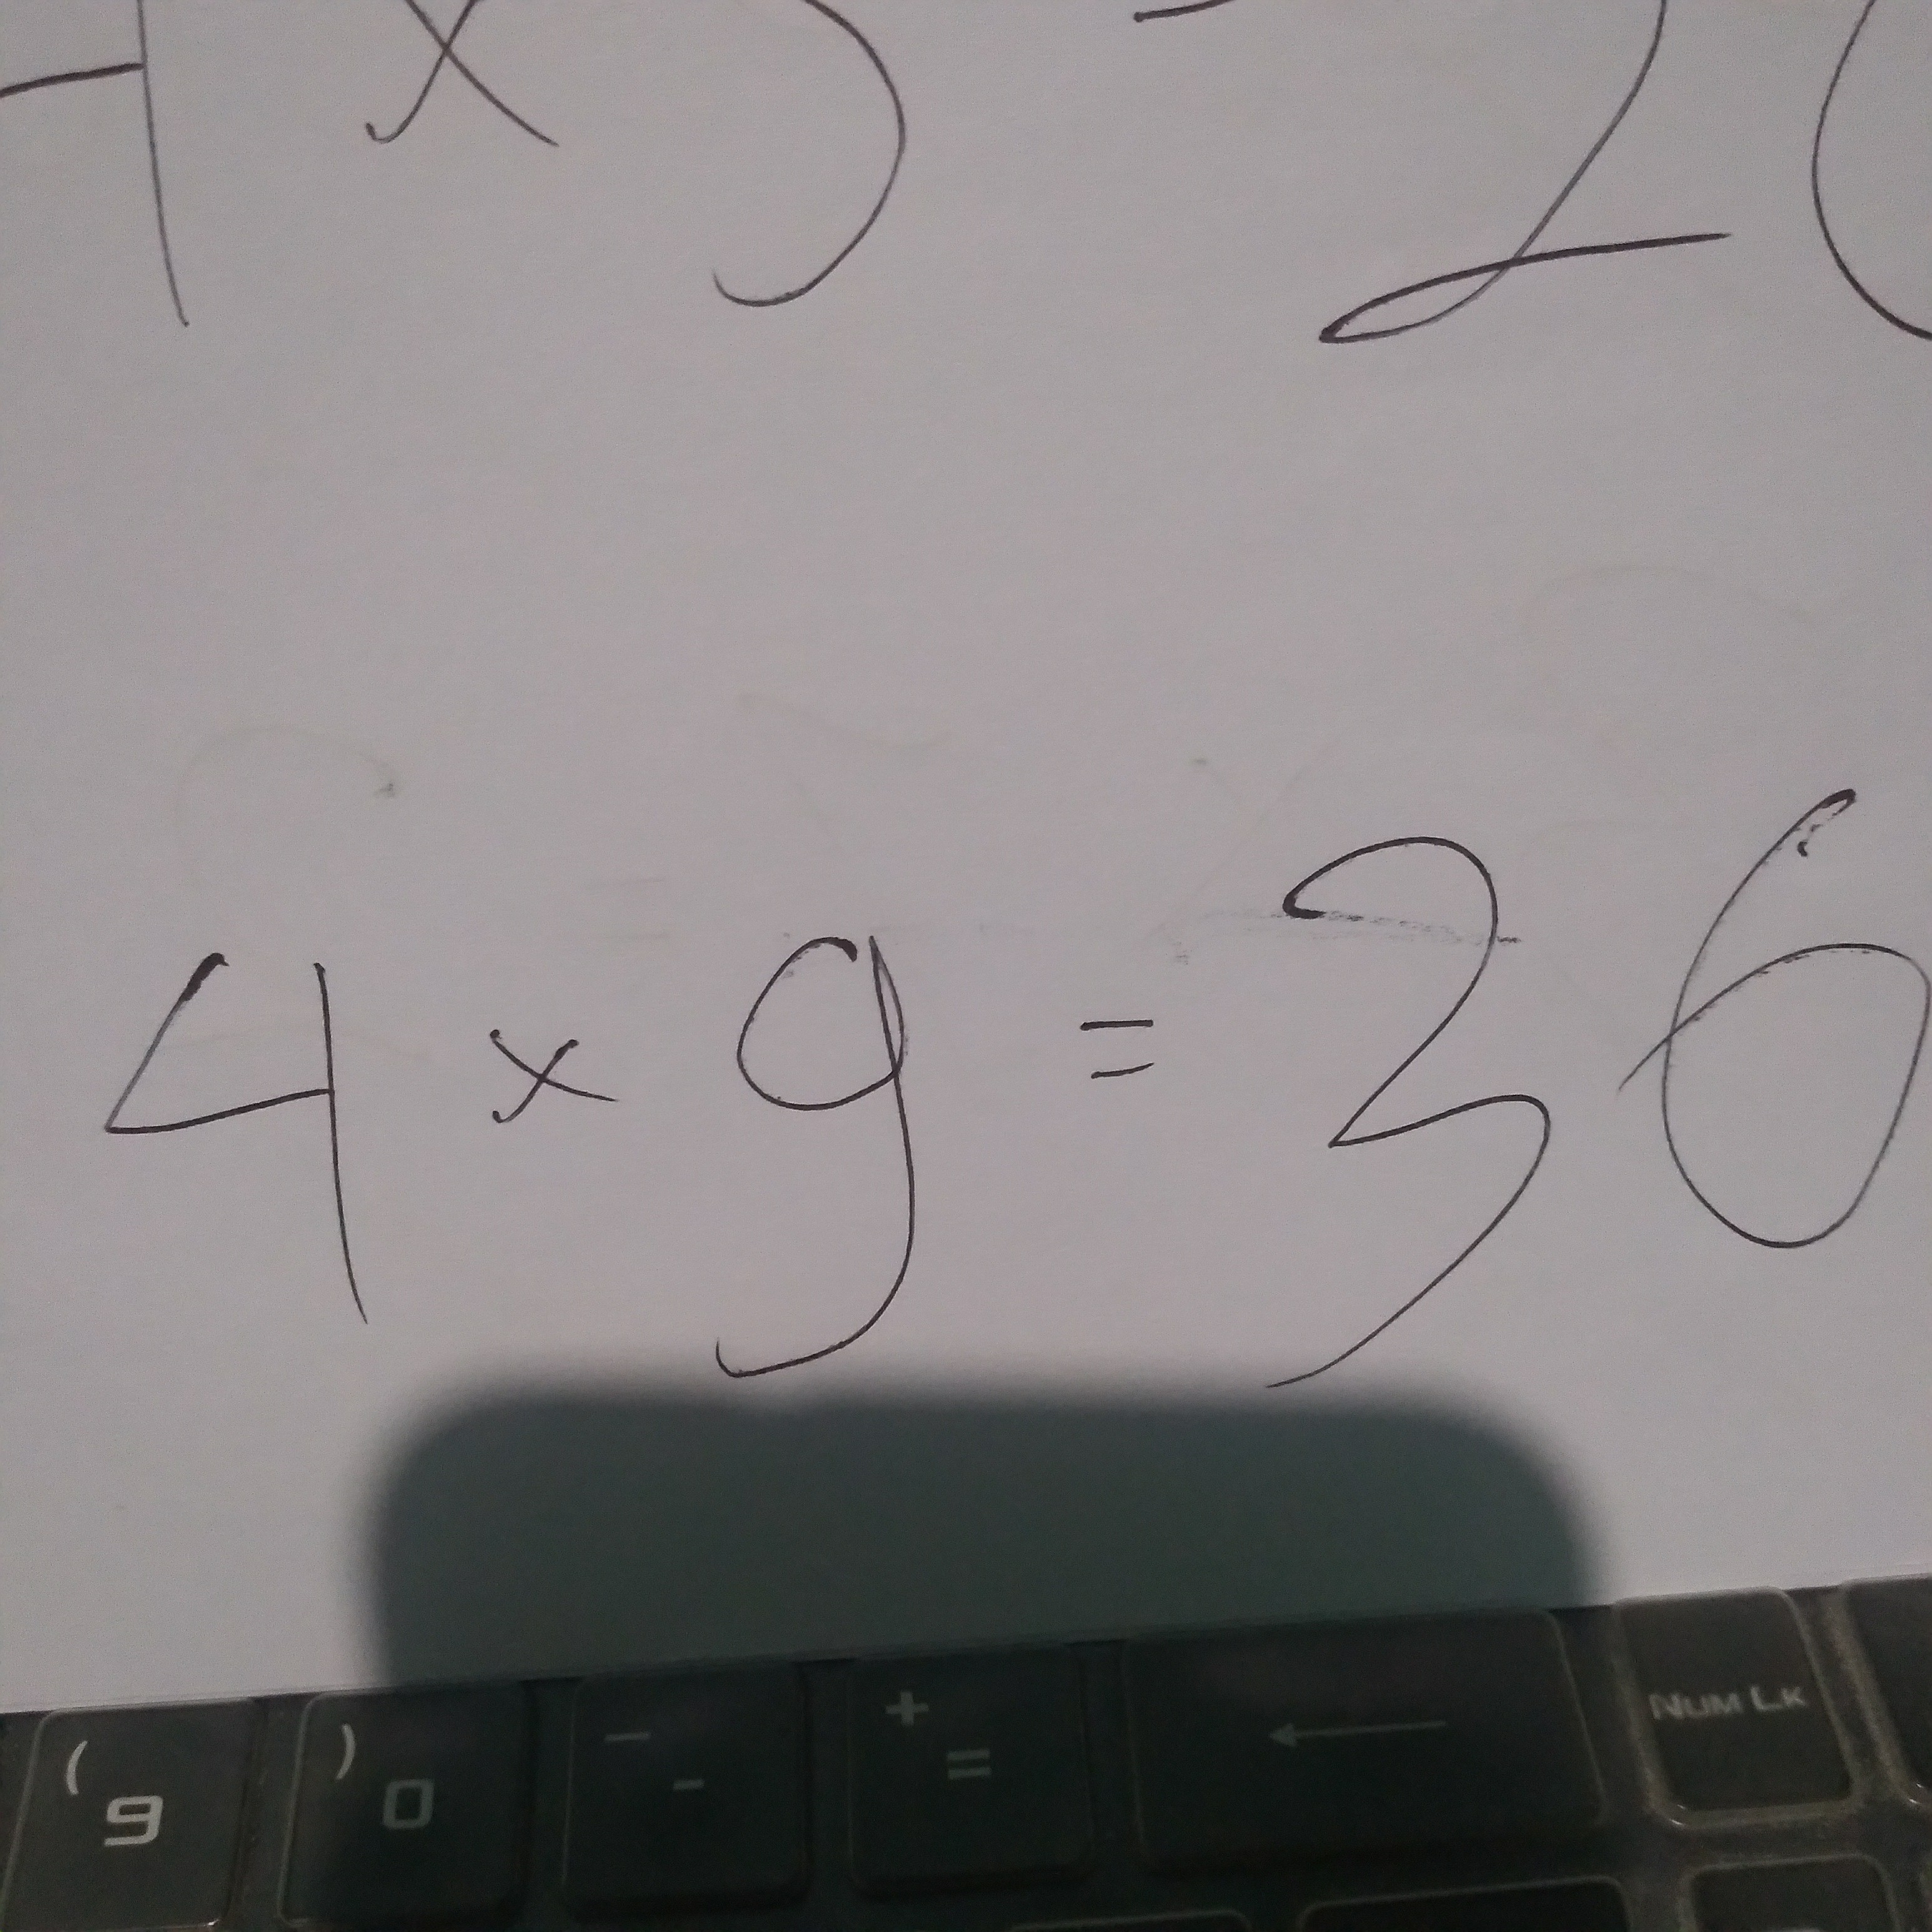 4 x 5 = 20
4 x 9 = 36
( ) _ +
9 0 - = ← NUM LK